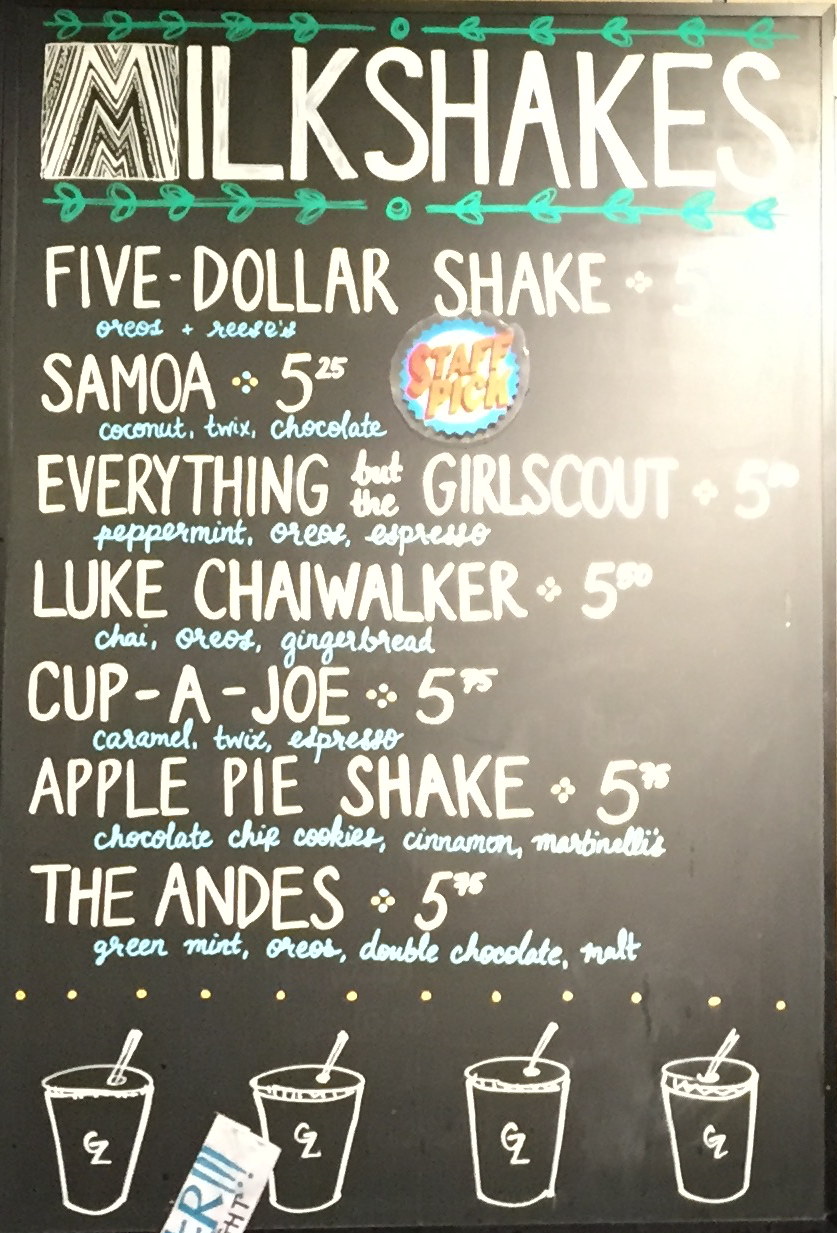 MILKSHAKES
FIVE-DOLLAR SHAKE 5
oreos + reese's
STAFF
PICK
SAMOA 5 25
coconut, twix, chocolate
EVERYTHING but the GIRLSCOUT 5
peppermint, oreos, espresso
LUKE CHAIWALKER 5 50
chai, oreos, gingerbread
CUP-A-JOE 5 75
caramel, twix, espresso
APPLE PIE SHAKE 5 75
chocolate chip cookies, cinnamon, martinelli's
THE ANDES 5 75
green mint, oreos, double chocolate, malt
GZ GZ GZ GZ
ER!!!
HT!!